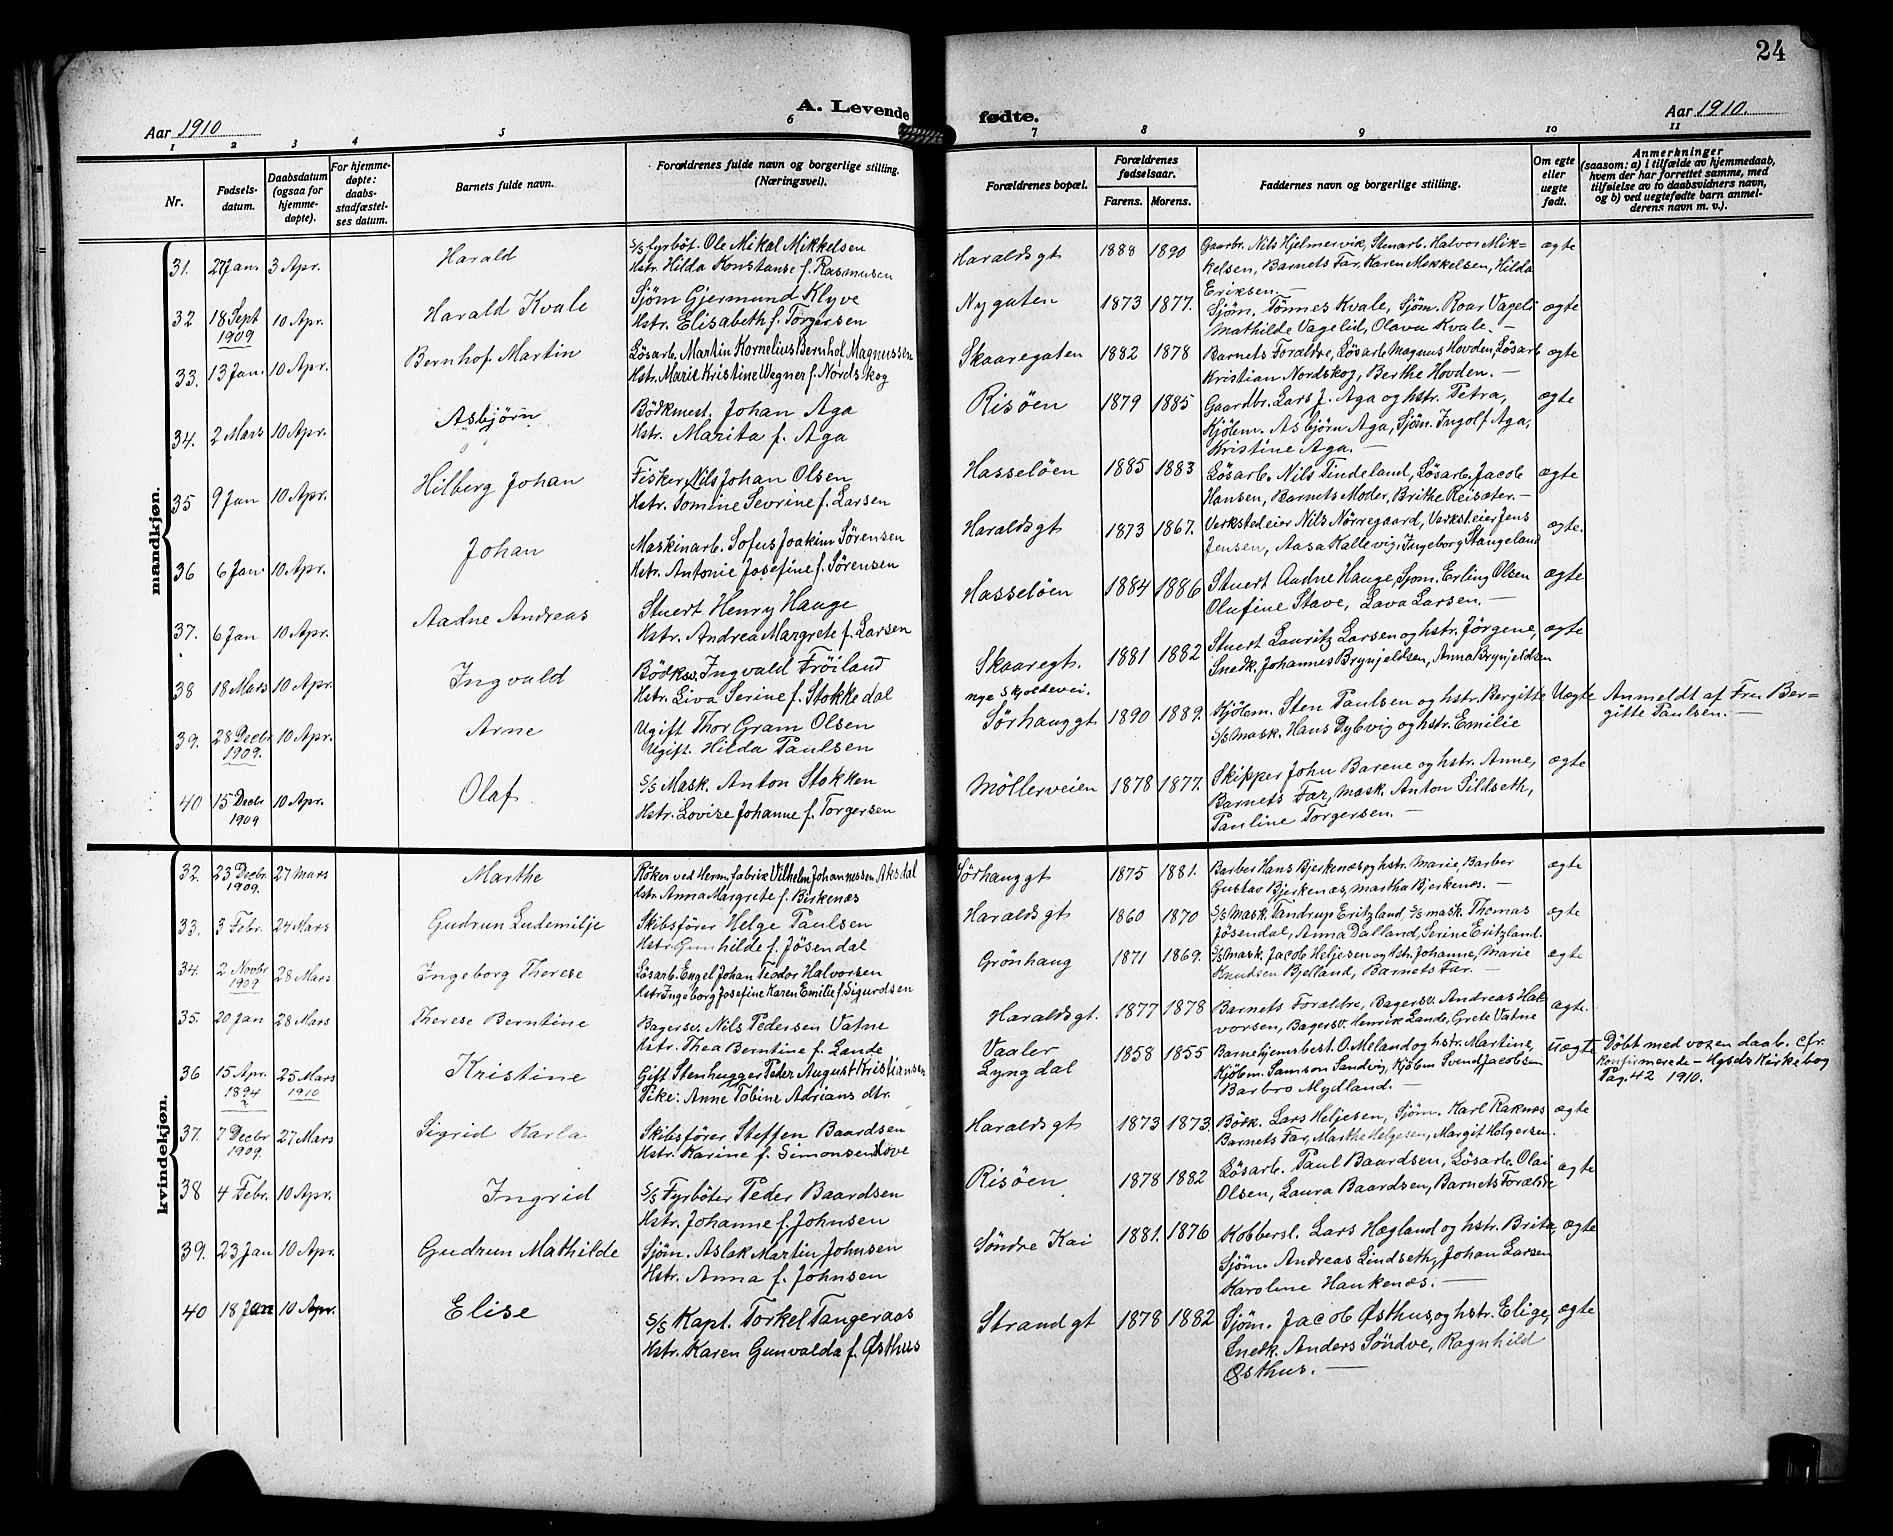 24
A. Levende fødte.
Aar 1910
Aar 1910.
1 2 3 4 5 6 7 8 9 10 11
Nr.
Fødsels-
datum.
Daabsdatum
(ogsaa for
hjemme-
døpte).
For hjemme-
døpte:
daabs-
stadfæstel-
ses datum.
Barnets fulde navn.
Forældrenes fulde navn og borgerlige stilling.
(Næringsvei).
Forældrenes bopæl.
Forældrenes
fødselsaar.
Farens. Morens.
Faddernes navn og borgerlige stilling.
Om egte
eller
uegte
født.
Anmerkninger
(saasom: a) i tilfælde av hjemmedaab,
hvem der har forrettet samme, med
tilføielse av to daabsvidners navn,
og b) ved uegtefødte barn anmel-
derens navn m. v.).
mandkjøn.
31. 27 Jan 3 Apr. Harald
S/S fyrböt. Ole Mikal Mikkelsen
Hstr. Hilda Konstanse f. Rasmusen
Haraldsgt 1888 1890
Gaarbr. Nils Hjelmervik, Stenarb. Halvor Mik-
kelsen, Barnets Far, Karen Mekkelsen, Hilda
Eriksen.—
ægte
32 18 Sept 1909 10 Apr. Harald Kvale
Sjöm Gjermund Klyve
Hstr. Elisabeth f. Torgersen
Nygaten 1873 1877.
Sjöm. Tönnes Kvale, Sjöm. Roar Vageli
Mathilde Vagelid, Olava Kvale.—
ægte
33. 13 Jan 10 Apr. Bernhof Martin
Lösarb. Martin Kornelius Bernhof Magnussen
Hstr. Marie Kristine Wegner f. Nordskog
Skaaregaten 1882 1878
Barnets Forældre, Lösarb Magnus Hovden, Lösarb
Kristian Nordskog, Berthe Hovden.—
ægte
34. 2 Mars 10 Apr. Asbjörn
Bödkmest. Johan Aga
Hstr. Marita f. Aga
Risöen 1879 1885
Gaardbr. Lars J. Aga og hstr. Petra,
Kjölem. Asbjörn Aga, Sjöm. Ingolf Aga,
Kristine Aga.—
ægte
35 9 Jan 10 Apr. Hilberg Johan
Fisker Nils Johan Olsen
Hstr. Tomine Sevrine f. Larsen
Hasselöen 1885 1883
Lösarb. Nils Tindeland, Lösarb. Jacob
Hansen, Barnets Moder, Brithe Reisæter.—
ægte
36 6 Jan 10 Apr. Johan
Maskinarb. Sofus Joakim Sörensen
Hstr. Antonie Josefine f. Sörensen
Haraldsgt 1873 1867.
Verkstedeier Nils Nörregaard, Verksteier Jens
Jensen, Aasa Kallevig, Ingeborg Stangeland
ægte.
37. 6 Jan 10 Apr. Aadne Andreas
Stuert Henry Hauge
Hstr. Andrea Margrete f. Larsen
Hasselöen 1884 1886
Stuert Aadne Hauge, Sjöm. Erling Olsen
Olufine Stave, Lava Larsen.—
ægte
38 18 Mars 10 Apr. Ingvald
Bödksv. Ingvald Fröiland
Hstr. Liva Serine f. Stokkedal
Skaaregt.
nye Skoldevei.
1881 1882
Stuert Lauritz Larsen og hstr. Jörgene,
Snedk. Johannes Brynjeldsen, Anna Brynjeldsen
ægte
39. 28 Decbr 1909. 10 Apr. Arne
Ugift Thor Gram Olsen
Ugift. Hilda Paulsen
Sörhauggt 1890 1889.
Kjölem. Sten Paulsen og hstr. Bergitte
S/S mask. Hans Dybvig og hstr. Emilie
Uægte
Anmeldt af Fru Ber=
gitte Paulsen.—
40 15 Decbr 1909 10 Apr. Olaf
S/S Mask. Anton Stokken
Hstr. Lovise Johanne f. Torgersen
Möllerveien 1878 1877.
Skipper John Barene og hstr. Anne,
Barnets Far, mask. Anton Sildseth,
Pauline Torgersen.—
ægte
kvindekjøn.
32. 23 Decbr 1909. 27 Mars Marthe
Röker ved Herm. fabrik Vilhelm Johannessen Aksdal
Hstr. Anna Margrete f. Birkenæs
Sörhauggt 1875 1881.
Barber Hans Bjerkenæs og hstr. Marie, Barber
Gustav Bjerkenæs, Martha Bjerkenæs.—
ægte
33. 3 Febr. 24 Mars Gudrun Ludemilje
Skibsförer Helge Paulsen
Hstr Gunhilde f. Jösendal
Haraldsgt 1860 1870
S/S mask. Tandrup Eritzland, S/S mask. Thomas
Jösendal, Anna Dalland, Serine Eritzland.
ægte
34. 2 Novbr 1909 28 Mars Ingeborg Therese
Lösarb. Engel Johan Teodor Halvorsen
Hstr Ingeborg Josefine Karen Emilie f. Sigurdsen
Grönhaug 1871 1869.
S/S mask. Jacob Heljesen og Hstr. Johanne, Marie
Knudsen Bjelland, Barnets Far.—
ægte
35. 20 Jan 28 Mars Therese Berntine
Bagersv. Nils Pedersen Vatne
Hstr. Thea Berntine f. Lande
Haraldsgt. 1877 1878
Barnets Forældre, Bagersv. Andreas Hal
vorsen, Bagersv. Henrik Lande, Grete Vatne
ægte.
36 15 Apr. 1894 25 Mars 1910 Kristine
Gift Stenhugger Peder August Kristiansen
Pike: Anne Tobine Adrians dtr.
Vaaler
Lyngdal
1858 1855
Barnehjemsbest. O. Meland og hstr. Martine,
Kjölem. Samson Sandvig, Kjölem Svend Jacobsen
Barbro Mydland.—
Uægte
Döbt med voxen daab. cfr.
Konfirmerede — Kirkebog
Pag. 42 1910.
37. 7 Decbr 1909. 27 Mars Sigrid Karla
Skibsförer Steffen Baardsen
Hstr. Karine f. Simonsen Hove
Haraldsgt 1873 1873
Börk. Lars Heljesen, Sjöm. Karl Raknæs
Barnets Far, Marthe Helgesen, Margit Holgersen.
ægte
38 4 Febr. 10 Apr. Ingrid
S/S Fyrböter Peder Baardsen
Hstr. Johanne f. Johnsen
Risöen 1878 1882
Lösarb. Paul Baardsen, Lösarb. Olai
Olsen, Laura Baardsen, Barnets Forældre
ægte
39. 23 Jan 10 Apr. Gudrun Mathilde
Sjöm. Aslak Martin Johnsen
Hstr. Anna f. Johnsen
Söndre Kai 1881. 1876
Kobbersl. Lars Hægland og hstr. Brita,
Sjöm. Andreas Lindseth, Johan Larsen
Karolene Haukenæs.—
ægte
40 18 Jan 10 Apr. Elise
S/S Kapt. Torkel Tangeraas
Hstr. Karen Gunvalda f. Østhus
Strandgt 1878 1882
Sjöm. Jacob Østhus, og hstr. Elige,
Snedk. Anders Söndve, Ragnhild
Østhus.—
ægte